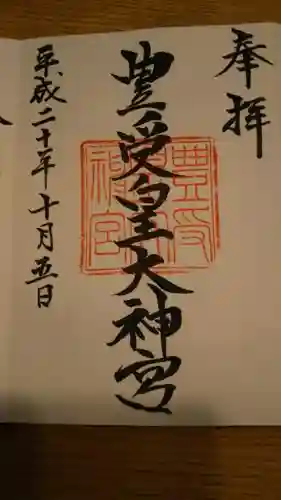 奉拝
豊受皇大神宮
豊受
神宮
平成二十年十月五日